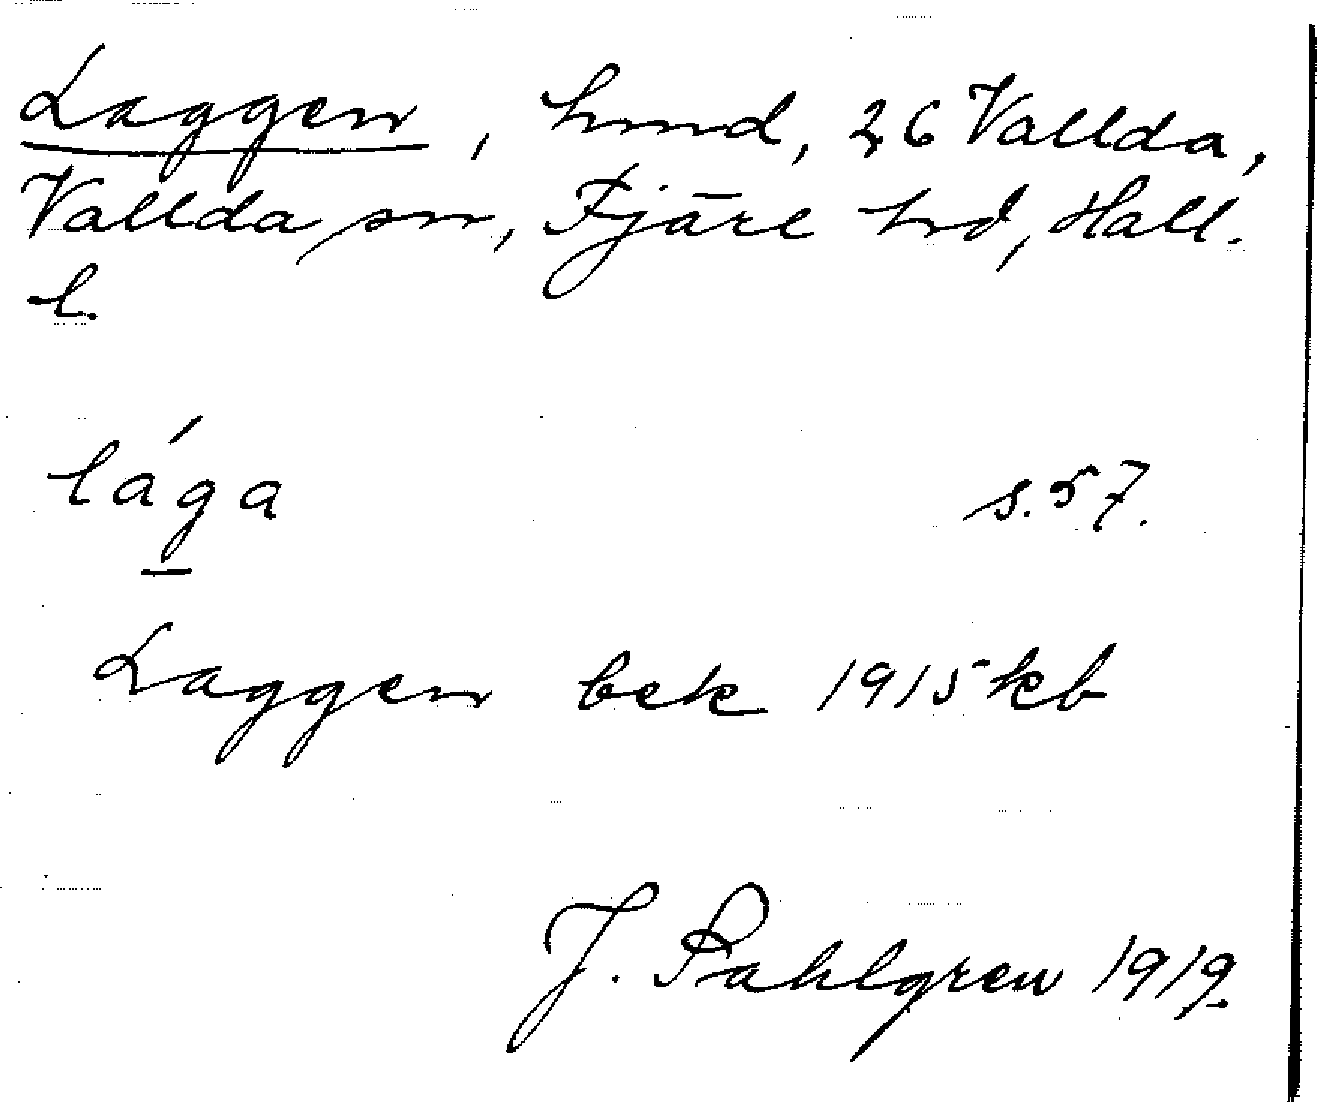 Laggen, hmd, 26 Vallda,
Vallda sn, Fjäre hd, Hall.
l.
lága s. 57.
Laggen bek 1915 kb
J. Sahlgren 1919.